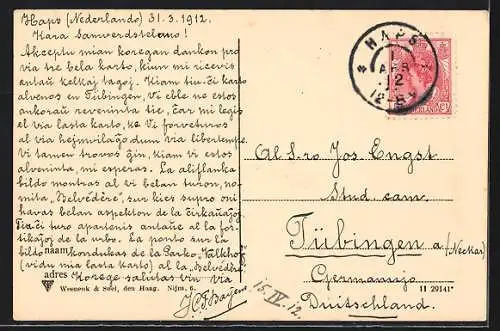 Haps (Nederlando) 31.3.1912.
Kara Samverdstelano!
Akceptu mian koregan dankon pro
via tre bela karto, kiun mi ricevis
antaŭ kelkaj tagoj. Kiam tiu ĉi karto
alvenos en Tübingen, Vi eble ne estos
ankoraŭ reveninta tie, ĉar mi legis
el via lasta karto, ke Vi forveturos
al via hejmvilaĝo dum via libertempo.
Vi tamen trovos ĝin, kiam vi estos
alveninta, mi esperas. La aliflanka
bildo montras al vi belan turon, no-
mita „Belvédère", sur kies supro oni
havas belan aspekton de la ĉirkaŭaĵoj
Tia ĉi turo apartenis antaŭe al la for-
tikaĵoj de la urbo. La ponto sur la
bildo kondukas de la Parko „Valkhof"
naam
(vidu mia lasta karto) al la „Belvédère"
adres Korege salutas vin via
Weenenk & Snel, den Haag. Nijm. 6.
15. IV. 12.
HAPS
APR
12
12-8V
Al S-ro Jos. Engst
Stud. cam.
Tübingen a/(Neckar)
Germanujo
Duitschland.
11 29141*